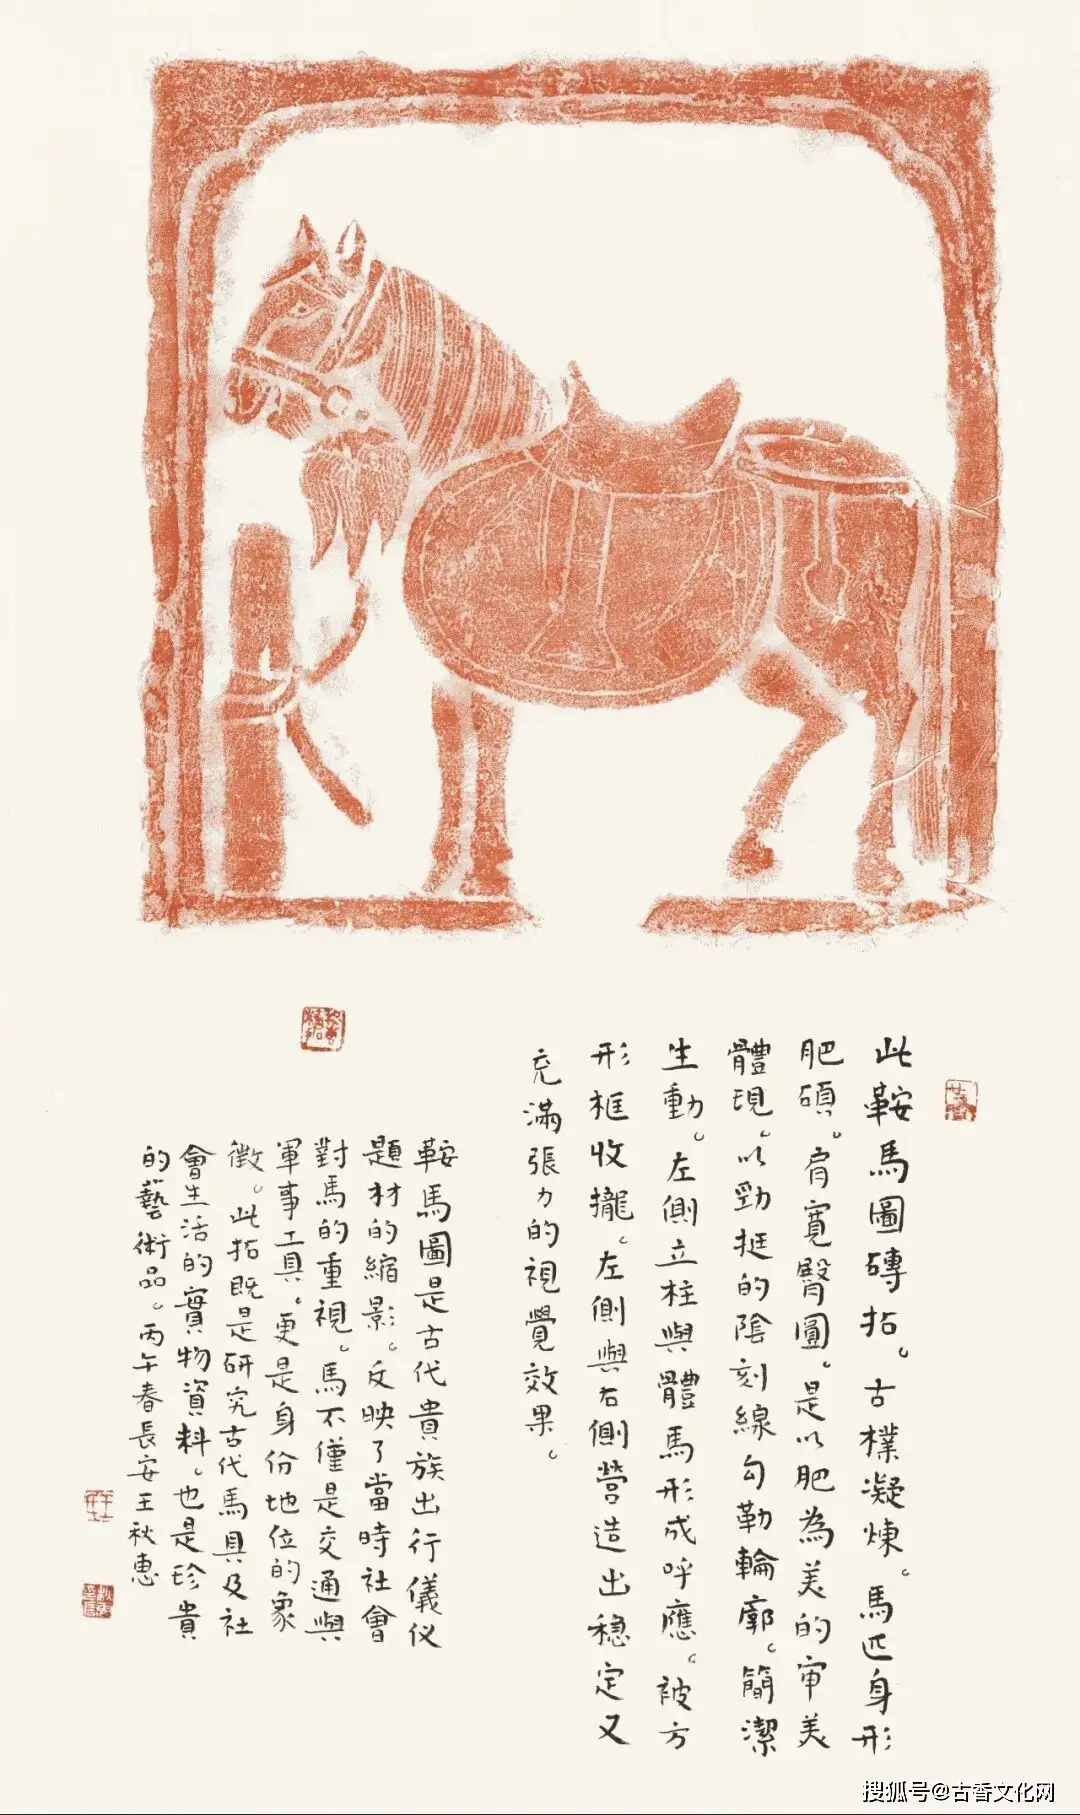 此鞍馬圖磚拓。古樸凝煉。馬匹身形
肥碩。肩寬臀圓。是以肥為美的审美
體現。以勁挺的陰刻線勾勒輪廓。簡潔
生動。左側立柱與體馬形成呼應。被方
形框收攏。左側與右側營造出穩定又
充滿張力的視覺效果。
鞍馬圖是古代貴族出行儀仪
題材的縮影。反映了當時社會
對馬的重視。馬不僅是交通與
軍事工具。更是身份地位的象
徵。此拓既是研究古代馬具及社
會生活的實物資料。也是珍貴
的藝術品。丙午春長安王秋惠
搜狐号@古香文化网